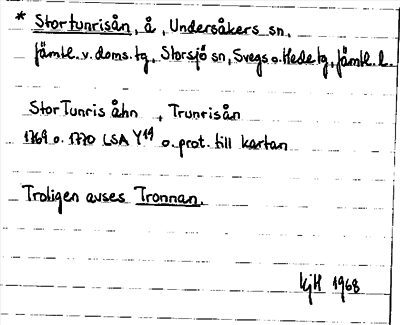 * Stortunrisån, å, Undersåkers sn,
Jämtl. v. doms. tg, Storsjö sn, Svegs o. Hede tg, Jämtl. l.
Stor Tunris åhn, Trunrisån
1769 o. 1770 LSA Y19 o. prot. till kartan
Troligen avses Tronnan.
KjH 1968